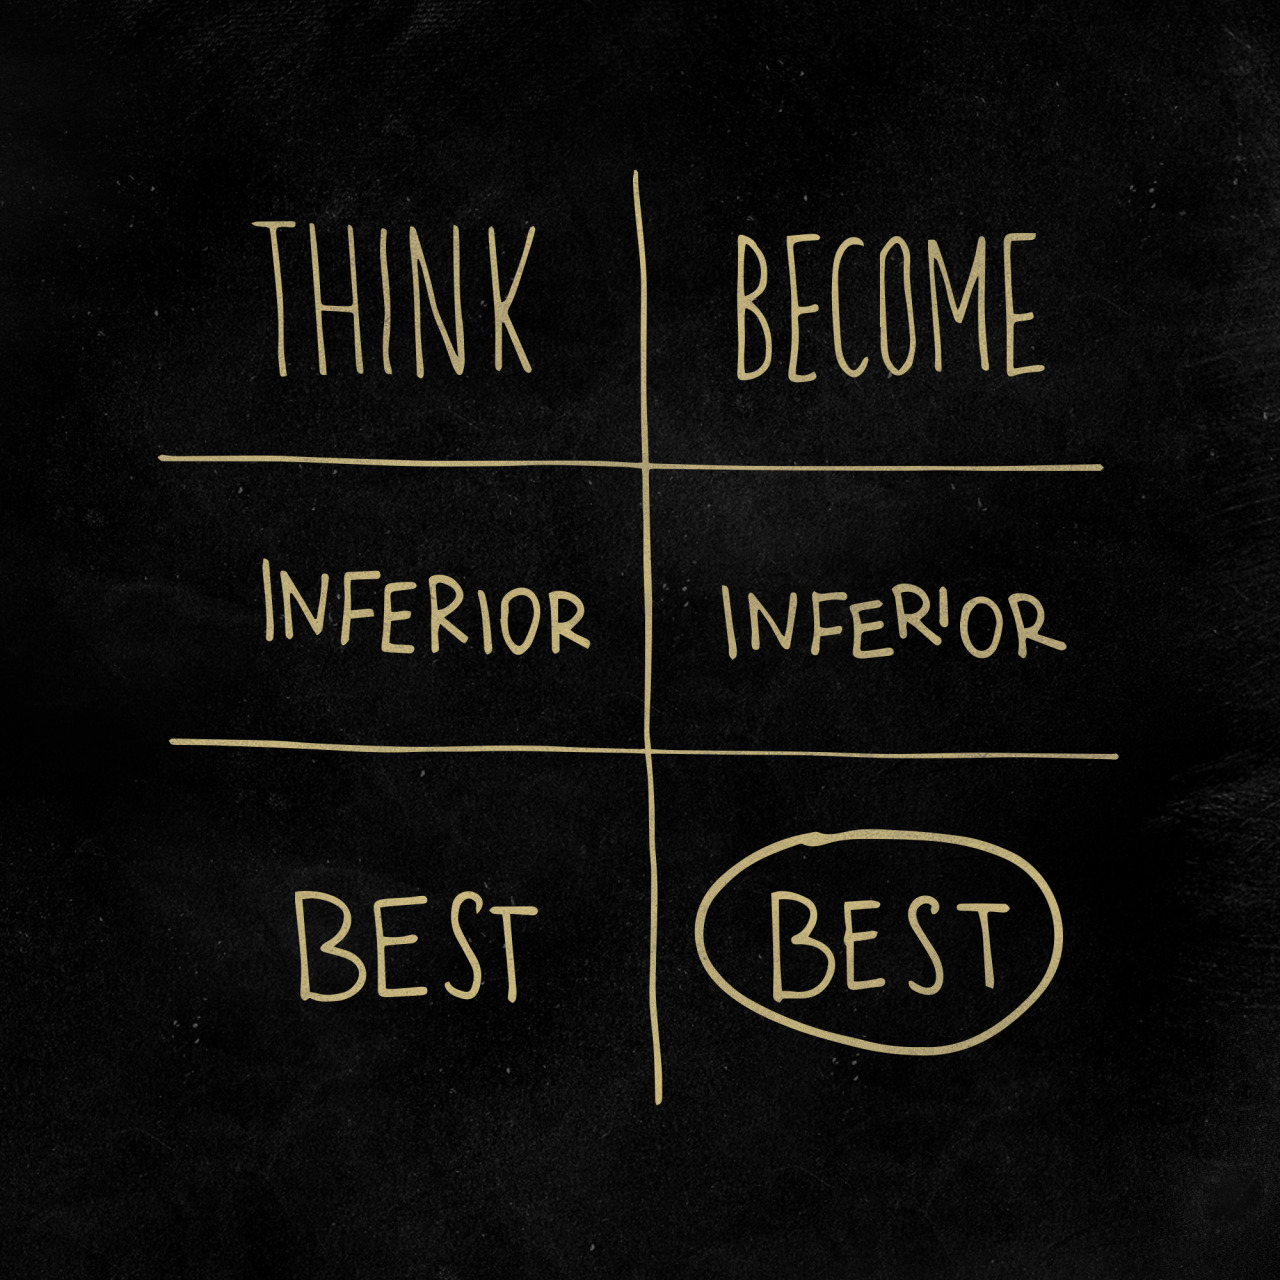 THINK BECOME
INFERIOR INFERIOR
BEST BEST